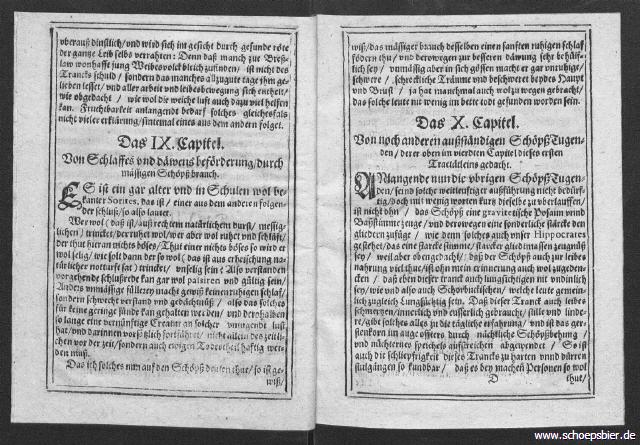 überauß dinstlich/und wird sich im gesicht durch gesunde röte
der gantze Leib selbs verrahten: Denn daß manch zur Breß-
law wonhafft jung Weibesvolck bleich zunfinden/ ist nicht des
Trancks schuld/ sondern das manches allzugute tage ihm ge-
lieben lesset/ und aller arbeit und leibesbewegung sich enteust/
wie obgedacht/ wie wol die weiche lufft auch dazu viel helffen
kan. Fruchtbarkeit anlangende bedarf solches gleichesfals
nicht vieler erklärung/sintemal eines aus dem andern folget.
Das IX. Capitel.
Von Schlaffes und däwens beförderung/durch
mässigen Schöpß brauch.
ES ist ein gar alter und in Schulen wol be-
kanter Sorites, das ist/ einer aus dem anderen folgen-
der schluß/ so also lautet.
Wer wol (daß ist/auß rechtem natürlichem durst/ messig-
lichen) trincket/der ruhet wol/wer aber wol ruhet und schläfft/
der thut hieran nichts böses/ Thut einer nichts böses so wird er
wol selig/ wie solt dann der so wol (das ist aus erheischung na-
türlicher notturft fast) trincket/ unselig sein? Also verstanden
vorgehende schlußrede kan gar wol passiren und gültig sein/
Anders unmässige füllerey macht gewiß keinen ruhigen schlaf/
sondern schwecht verstand und gedächtnüß/ als das solches
für keine geringe sünde kan gehalten werden/ und derohalben
so lange eine vernünftige Creatur an solcher unzugende lust
hat/ und darinnen vorsetzlich fortfähret/ nicht allein des zeitli-
chen vor der zeit/sondern auch ewigen Todes theilhaftig wer-
den muß.
Das ich solches nun auf den Schöpß deuten thue/ so ist ge-
wiß/
wiß/das mässiger brauch desselben einen sanften ruhigen schlaf
födern thu/ und derowegen zur besseren däwung sehr behülff-
lich sey/ unmässig aber in sich gossen macht er gar unruhige/
schwere/ schreckliche Träume und beschweret beydes Haupt
und Brust/ ja hat manchmal auch wol zu wegen gebracht/
das solche leute nit wenig im bette todt gefunden worden sein.
Das X. Capitel.
Von noch anderen außständigen Schöpß Tugen-
den/ derer oben im vierdten Capitel dieses ersten
Tractätleins gedacht.
ANlangende nun die übrigen Schöpß Tugen-
den/ seind solche weitleuftiger außführung nicht bedürf-
tig/ doch mit wenig worten kurtz dieselbe zu überlauffen/
ist nicht ohn/ das Schöpß eine gravitetische Posaun und
Baßstimme zeuge/ und derowegen eine sonderliche stärcke den
gliedern zufüge/ wie denn solches auch unser Hippocrates
gestehet/das eine starcke stimme/ starcker gliedmassen zeugnüß
sey/ weil aber obengedacht/ daß der Schöpß auch zur leibes
nahrung viel thue/ist ohn mein erinnerung auch wol zugeden-
cken/ daß eben dieser tranck auch lungsichtigen nit undinst-
lich/ wie und also auch Schorbückischen/ welche leute gemein-
lich zugleich Lungsüchtig sein. Daß dieser Tranck auch leibes
schmertzen/innerlich und eusserlich gebraucht/ stille und linde-
re/gibt solches alles zu die tägliche erfahrung/ und ist das ger-
stenkorn im auge offters durch nächtliche Schöpßbehung/
und nüchternes speichels aufstreichen abgewendet/ So ist
auch die schliepfrigkeit dieses Trancks zu harten und dürren
stulgängen so kundbar/ daß es bey machen Personen so wol
D thut/
www.schoepsbier.de